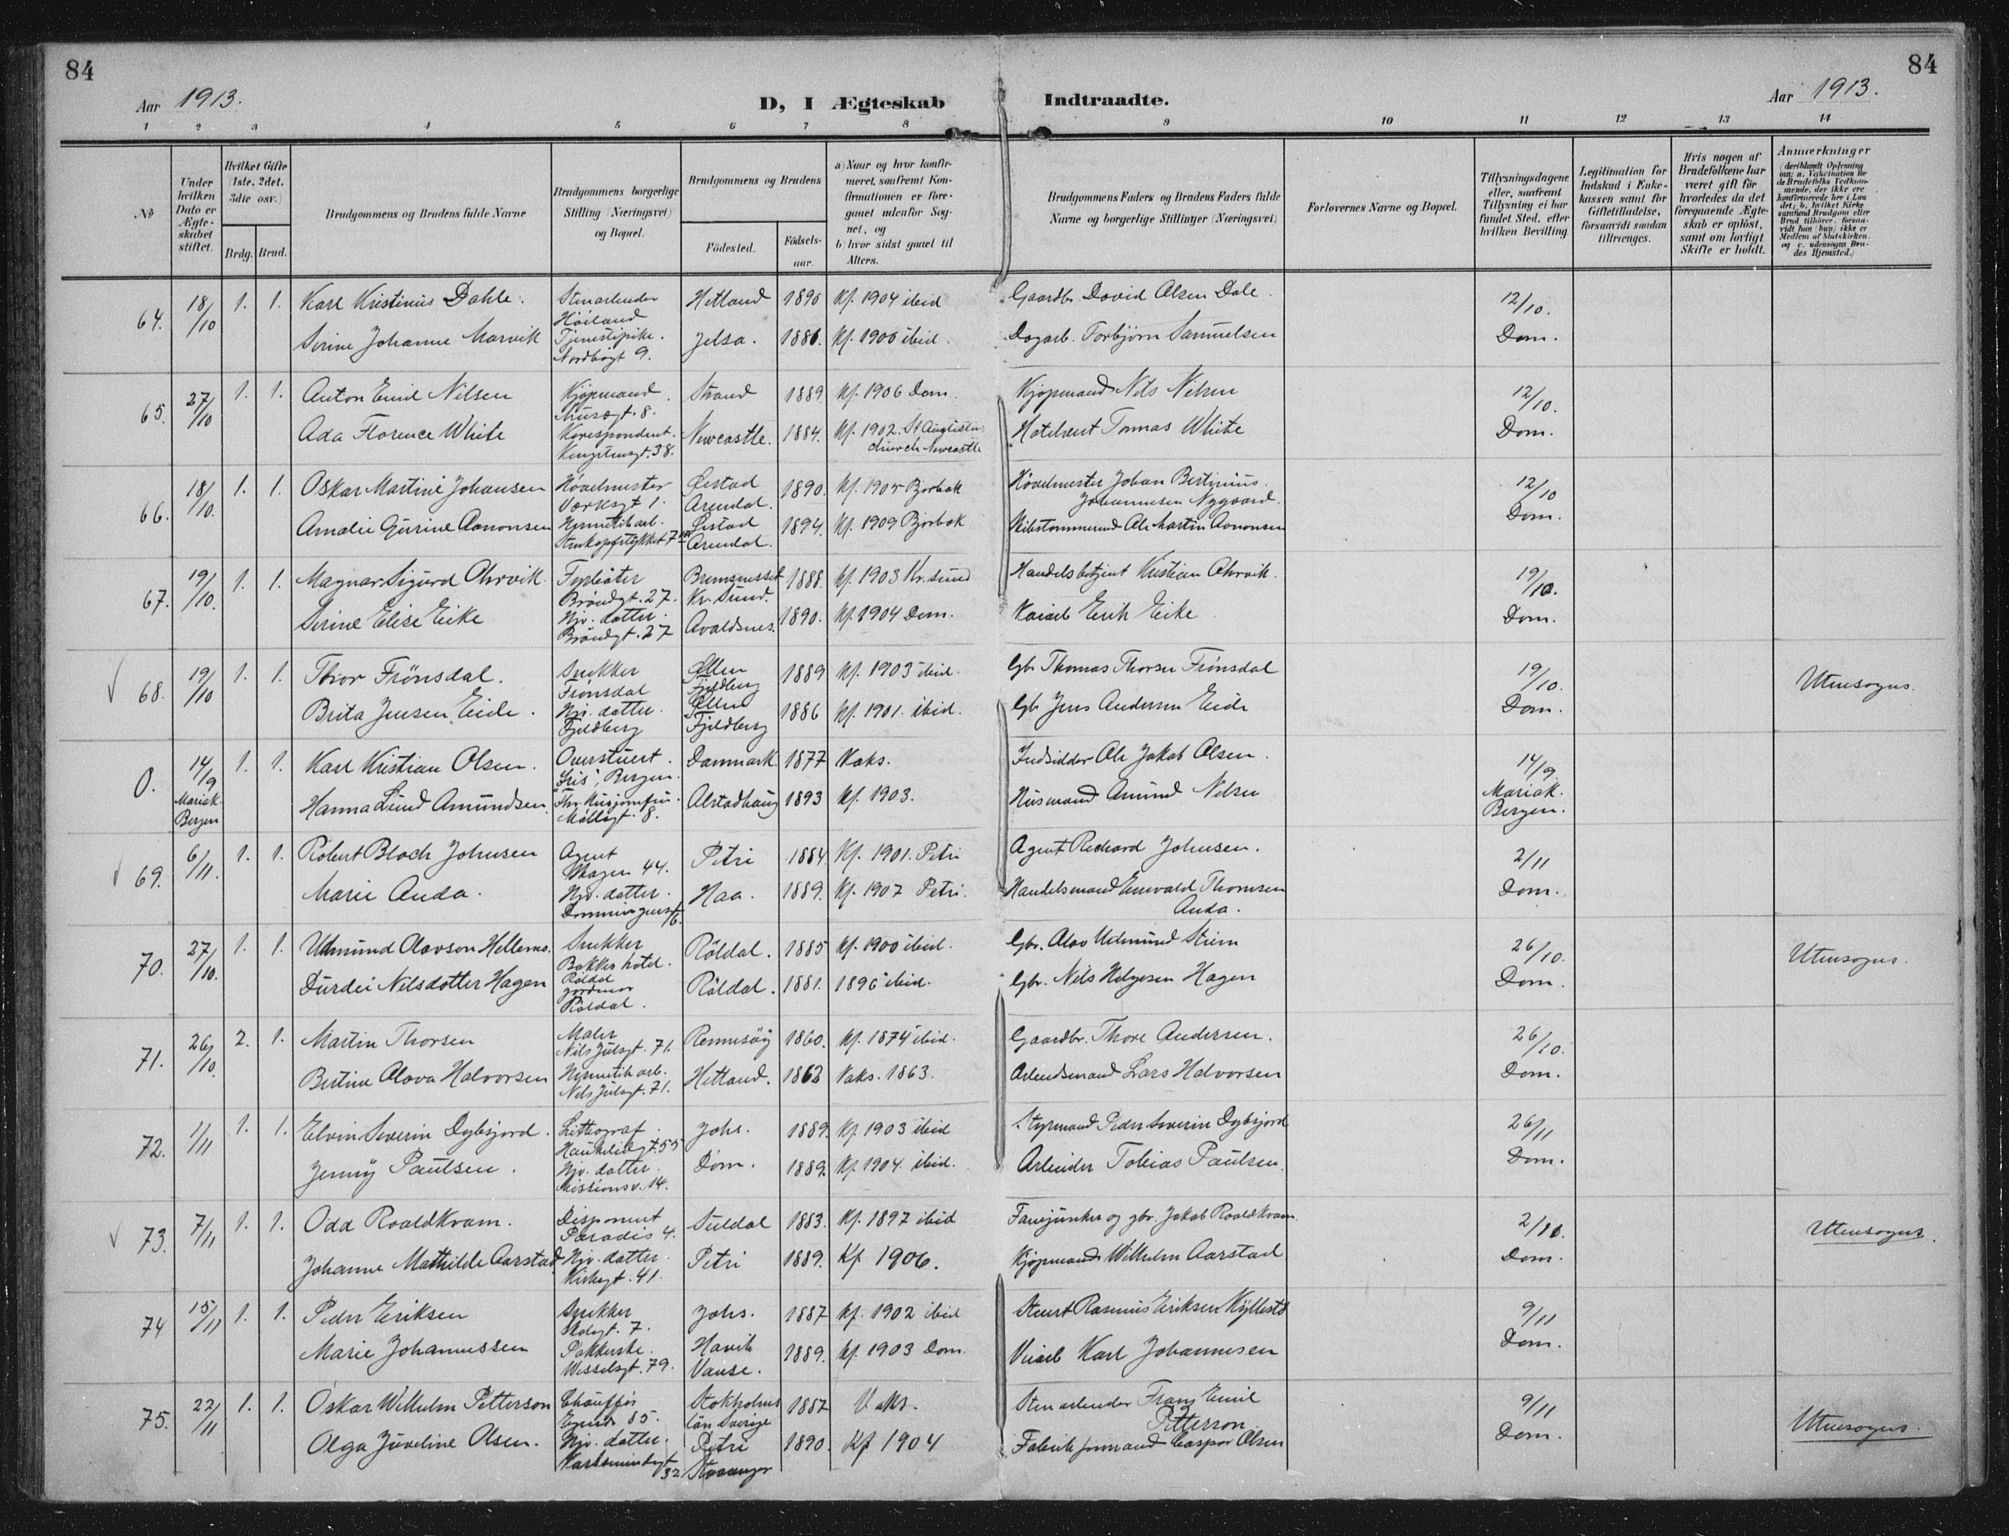 84
84
Aar 1913.
D, I Ægteskab Indtraadte.
Aar 1913.
1 2 3 4 5 6 7 8 9 10 11 12 13 14
No
Under hvilken Dato er Ægteskabet stiftet.
Hvilket Gifte (1ste, 2det, 3die osv.)
Brdg. Brud.
Brudgommens og Brudens fulde Navne
Brudgommens borgerlige Stilling (Næringsvei) og Bopæl.
Brudgommens og Brudens
Fødested.
Fødselsaar.
a) Naar og hvor konfirmeret, saafremt Konfirmationen er foregaaet udenfor Sognet, og
b) hvor sidst gaaet til Alters.
Brudgommens Faders og Brudens Faders fulde Navne og borgerlige Stillinger (Næringsvei)
Forlovernes Navne og Bopæl.
Tillysningsdagene eller, saafremt Tillysning ei har fundet Sted, efter hvilken Bevilling
Legitimation for Indskud i Enkekassen samt for Giftetilladelse, forsaavidt saadan tiltrænges.
Hvis nogen af Brudefolkene har været gift før hvorledes da det foregaaende Ægteskab er opløst, samt om lovligt Skifte er holdt.
Anmærkninger
64. 18/10 1. 1. Karl Kristinius Dahle. Stenarbeider Höiland Hetland 1890 Kf. 1904 ibid Gaardbr. David Olsen Dale. 12/10.
Serine Johanne Marvik Tjenestepike. Nordbögt 9. Jelsa. 1886. Kf. 1900 ibid. Dagarb. Torbjørn Samuelsen Dom.
65. 27/10 1. 1. Anton Emil Nilsen Kjøpmand Strand 1889. Kf. 1906 Dom. Kjøpmand Nils Nilsen 12/10.
Ada Florence White Korespondent. Kongstensgt. 38. Newcastle. 1884. Kf. 1902. St Augustin church Newcastle Hotelvert Tomas White Dom.
66. 18/10. 1. 1. Oskar Martini Johansen Høvelmester Værksgt 1. Øiestad Arendal. 1890. Kf. 1905 Bjorbak Høvelmester Johan Bertinius Johannesen Nygaard. 12/10
Amalie Gurine Aanonsen Hermetik arb. Øiestad Arendal. 1894. Kf. 1909 Bjorbak Skibstømmermand Ole Martin Aanonsen Dom.
67. 19/10. 1. 1. Magnar Sigurd Ohrvik. Brøndgt. 27. Bremsnesset Kr. Sund. 1888. Kf. 1903 Kr. sund Handelsbetjent Kristian Ohrvik. 19/10.
Serine Elise Eike Hjv. datter. Brøndgt. 27 Avaldsnes. 1890. Kf. 1904 Dom. Kaiarb Erik Eike Dom.
68. 19/10 1. 1. Thior Frönsdal. Snekker Frönsdal Ølen Fjeldberg 1889 Kf. 1903 ibid. Gbr Thomas Thorsen Frönsdal 19/10. Utensogns.
Brita Jensen Eide. Hjv. datter. Fjeldberg Ølen Fjeldberg 1886 Kf. 1901. ibid. Gbr Jens Andersen Eide Dom.
0. 14/9 Mariak. Bergen 1. 1. Karl Kristian Olsen. Overstuert. "Iris", Bergen. Danmark. 1877 Vaks. Indsidder Ole Jakob Olsen. 14/9
Hanna Lund Amundsen Møllegt. 8. Alstadhaug 1893 Kf. 1903. Husmand Amund Nilsen Mariak. Bergen.
69. 6/11. 1. 1. Robert Bloch Johnsen Agent Skagen 44. Petri 1884 Kf. 1901. Petri Agent Richard Johnsen. 2/11
Marie Anda. Hjv. datter. Haa. 1889. Kf. 1907 Petri. Handelsmand Enevald Thomsen Anda. Dom.
70. 27/10. 1. 1. Udmund Olavson Hellemo. Snekker Bakken hotel. Röldal Röldal. 1885 Kf. 1900 ibid. Gbr. Olav Udmund Steim 26/10. Utensogns.
Durdei Nilsdotter Hagen Röldal. Röldal. 1881. 1896 ibid. Gbr. Nils Helgesen Hagen Dom.
71. 26/10. 2. 1. Martin Thorsen Maler Nils Julsgt. 71. Rennesöy 1860. Kf. 1874 ibid. Gaardbr. Thore Andersen. 26/10.
Bertine Olava Halvorsen Hermetik arb. Nils Julsgt. 71. Hetland. 1862 Vaks. 1863. Arbeidsmand Lars Halvorsen Dom.
72. 1/11 1. 1. Elvin Severin Dybsjord. Lithograf. Haukeligt. 55 Johs. 1889. Kf. 1903 ibid Styrmand Peder Severin Dybsjord 26/11
Jenny Paulsen. Hjv. datter. Missionsv. 14. Dom. 1889. Kf. 1904. ibid. Arbeider Tobias Paulsen. Dom.
73. 7/11 1. 1. Odd Roaldkvam. Disponent Paradis 4. Suldal 1883. Kf. 1897 ibid Fanejunker og gbr. Jakob Roaldkvam 2/10. Utensogns.
Johanne Mathilde Aarstad Hjv. datter. Kirkegt. 41. Petri 1889. Kf 1906. Kjøpmand Wilhelm Aarstad Dom.
74 15/11 1. 1. Peder Eriksen Snekker Johs. 1887 Kf. 1902 ibid Stuert Rasmus Eriksen 9/11
Marie Johannessen Pakkerske. Wesselsgt. 79. Havik Vanse. 1889. Kf. 1903 Dom. Veiarb Karl Johannesen Dom.
75. 22/11 1. 1. Oskar Wilhelm Petterson Chauffør 85. Stokholms län Sverige 1887 Vaks. Stenarbeider Frans Emil Petterson 9/11 Utensogns.
Olga Juveline Olsen. Hjv. datter. 32 Petri Stavanger 1890. Kf 1904 Fabrikformand Caspar Olsen Dom.